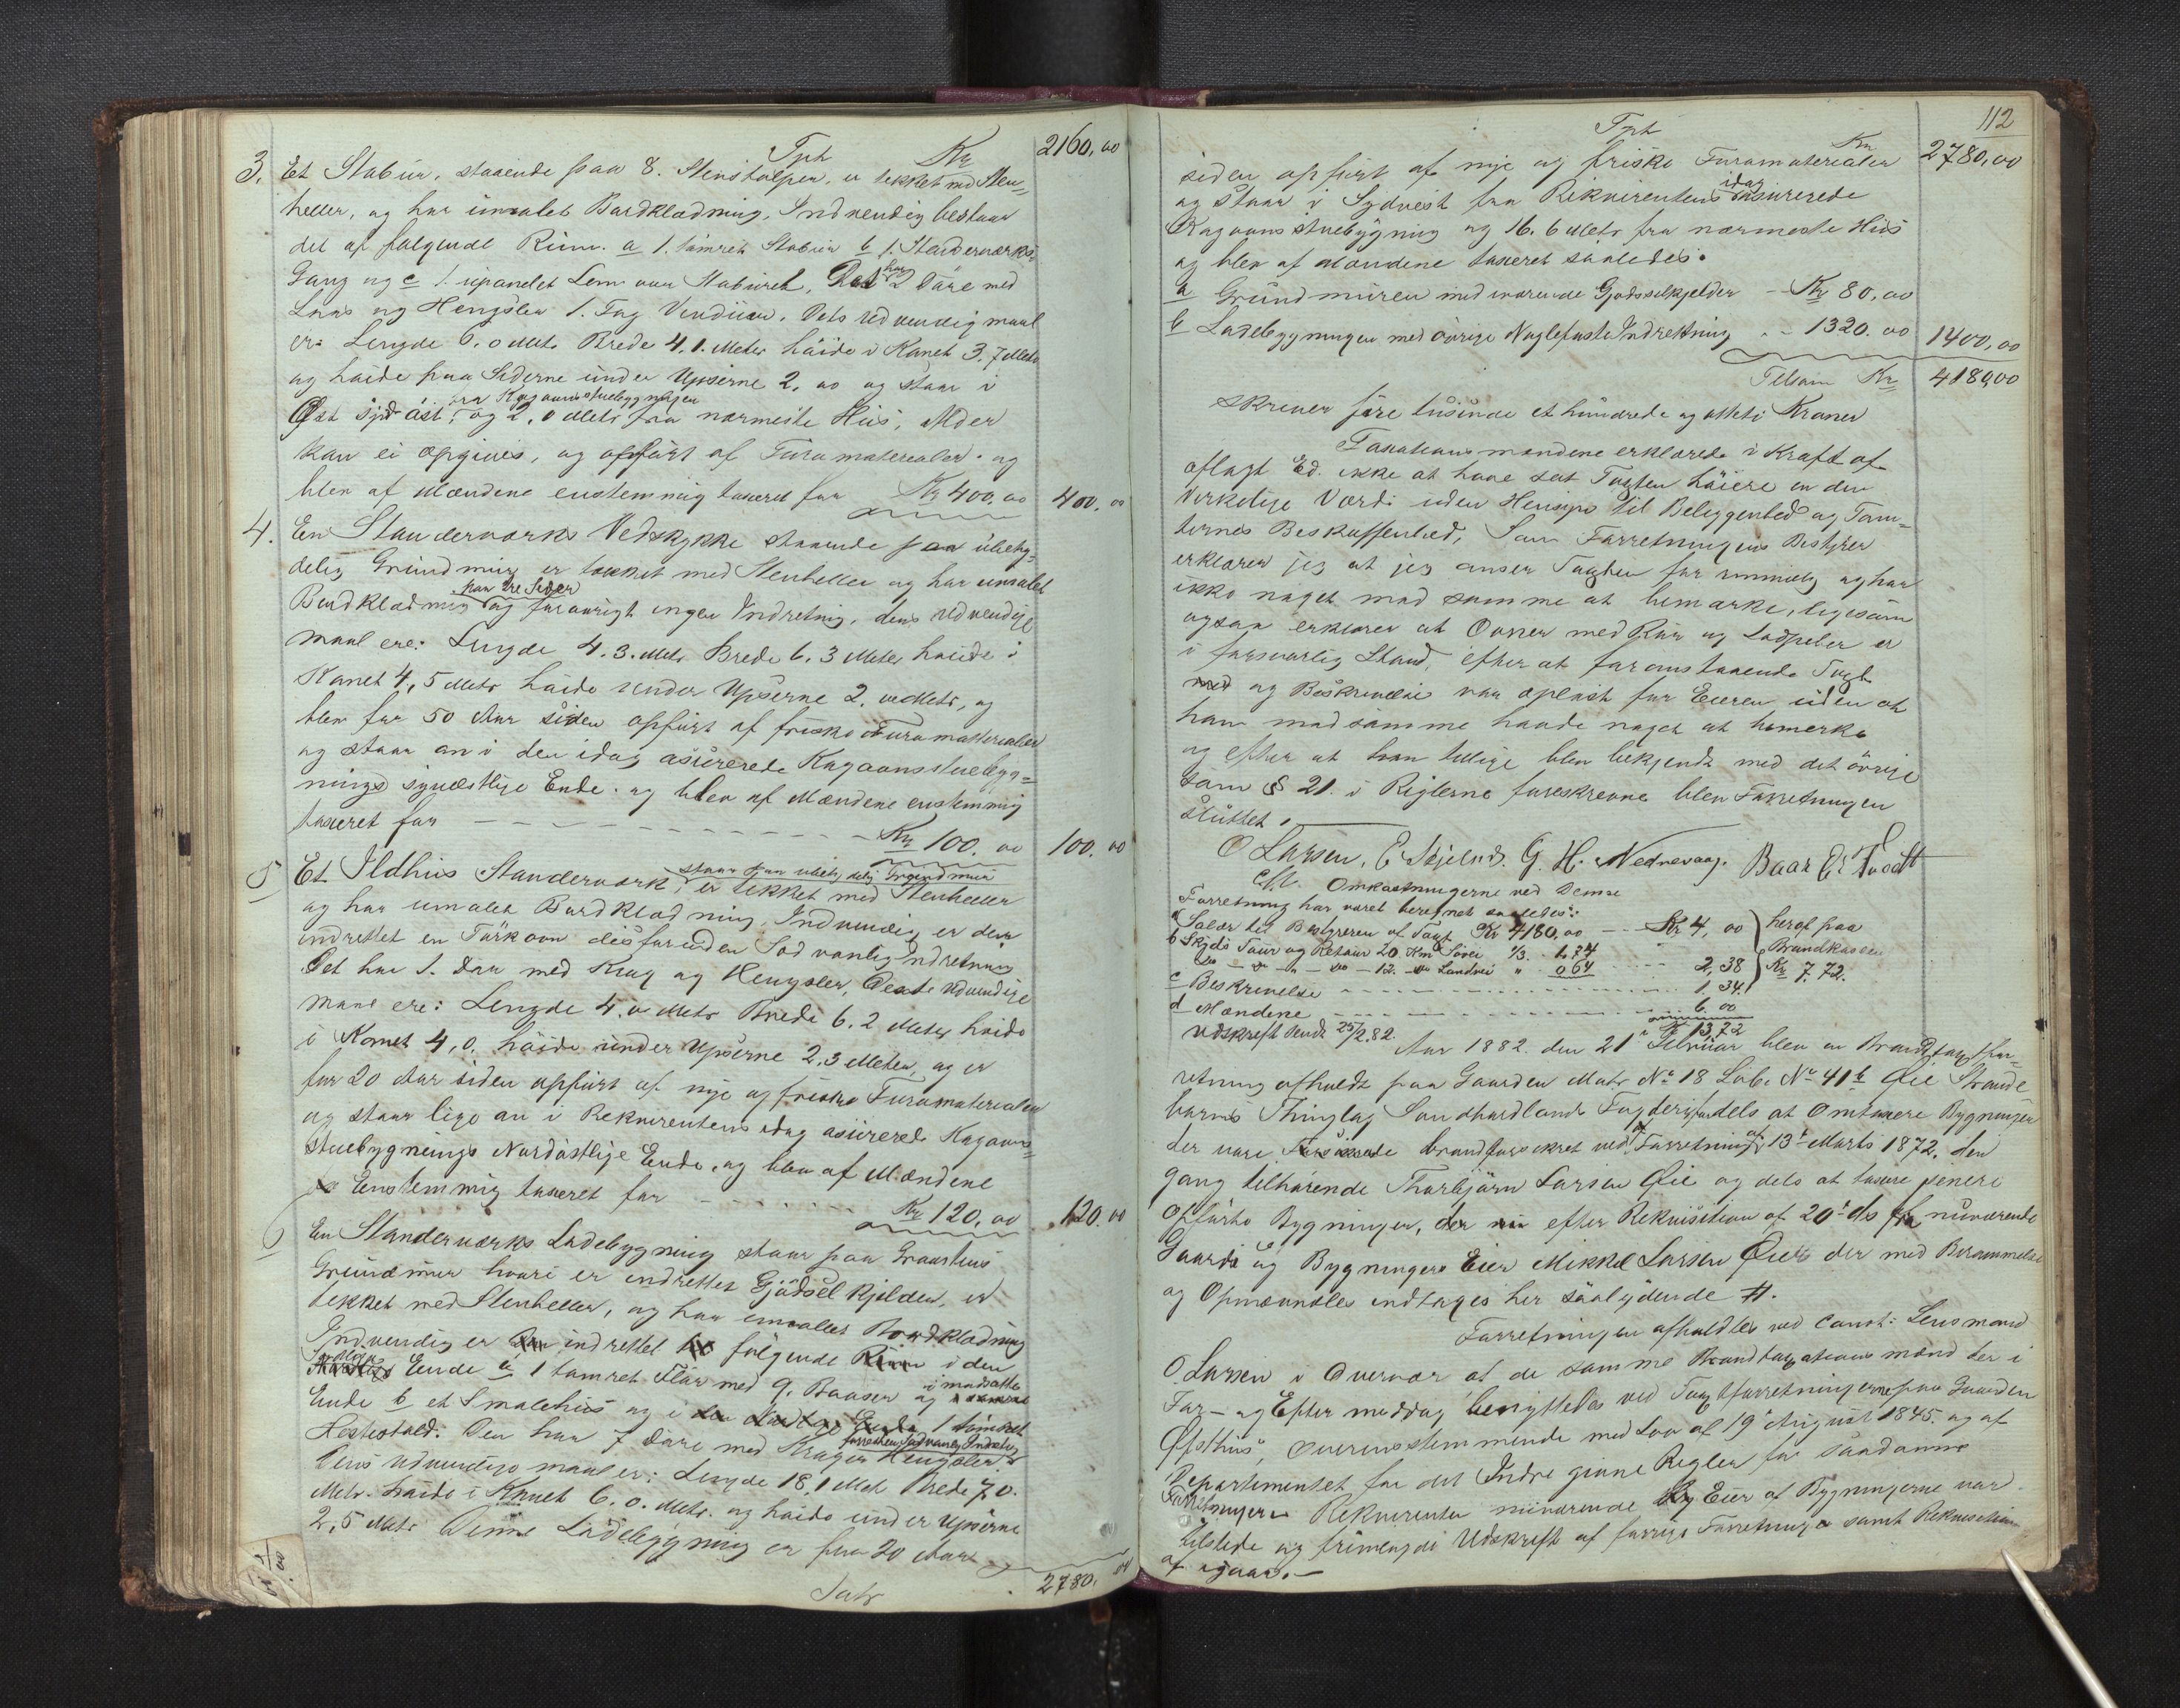 Tpt Kr 2160,00
3. Et Stabur, staaende paa 8. Stenstolper, er tækket med Sten=
heller, og har umalet Bordklædning, Indvendig bestaar
det af følgende Rum. a 1. tømret Stabur b 1. Stenderværks=
Gang og c 1. upanelet Lem over Staburet, Det har 2 Døre med
Laas og Hengsler 1. Fag Vinduer. Dets udvendig maal
er: Lengde 6.0 Metr Brede 4,1. Meter høide i Kanet 3,7 Metr
og høide paa Siderne under Upserne 2,00 og staar i
Øst syd øst, fra Røgovnsstuebygningen og 2,0 Metr fra nærmeste Hus, Alder
kan ei opgives, og opført af Furumaterialer. og
blev af Mændene enstemmig taxeret for Kr 400,00 400,00
4. En Stenderværks Vedskykke staaende paa ubety=
delig Grundmur er tækket med Stenheller og har umalet
Bordklædning paa tre Sider og forøvrigt ingen Indretning, dens udvendige
maal ere: Lengde 4.3. Metr Brede 6.3 Meter høide i
Kanet 4,5 Metr høide under Upserne 2.00 Metr, og
blev for 50 Aar siden opført af friske Furumaterialer
og staar an i den idag asurerede Røgovnsstuebygg=
nings sydvestlige Ende. og blev af Mændene enstemmig
taxeret for - - - - - - - Kr 100.00 100.00
5 Et Ildhus Stenderværk, staar paa ubetydelig Grundmur er tækket med Stenheller
og har umalet Bordklædning Indvendig er den
indrettet en Tørkovn desforuden Sædvanlig Indretning
Det har 1. Dør med Krog og Hengsler, Dets udvendige
maal ere: Lengde 4.0 Metr Brede 6.2 Meter høide
i Kanet 4,0. høide under Upserne 2,3 Meter, og er
for 20 Aar siden opført af nye og friske Furumaterialer
og staar lige an i Rekvirentens idag asurerede Røgovns=
stuebygnings Nordøstlige Ende, og blev af Mændene
Enstemmig taxeret for - - - - - Kr 120,00 120.00
6 En Stenderværks Ladebygning staar paa Graastens
Grundmur hvori er indrettet Gjødselkjelder, er
tækket med Stenheller, og har umalet Bordklædning
Indvendig er indrettet følgende i den
Sydlige Ende a 1 tømret Flor med 9. Baaser og i modsatte
Ende b et Smalehus og 1 tømret
Hestestald. Den har 7 Døre med Kroger Hengsler forresten sædvanlig Indretning
Dens udvendige maal er: Lengde 18,1 Met Brede 7,0.
Metr. høide i Kanet 6.0. Metr. og høide under Upserne
2,5 Metr Denne Ladebygning er for 20 Aar
Latr 2780,00
112
Tpt Kr 2780,00
siden opført af nye og friske Furumaterialer
og staar i Sydvest fra Rekvirentens idag asurerede
Røgovnsstuebygning og 16.6 Metr fra nærmeste Hus
og blev af Mændene taxeret saaledes:
a Grundmuren med værende Gjødselkjelder - Kr 80,00
b Ladebygningen med øvrige Naglefaste Indretning - - 1320.00 1400,00
Tilsam Kr 4180,00
Skriver fire tusinde et hundrede og otteti Kroner
Taxationsmændene erklærede i Kraft af
aflagt Ed. ikke at have sat Taxten høiere en den
virkelige Værdi uden Hensyn til Beliggenhed og Tom=
ternes Beskaffenhed, Som Forretningens Bestyrer
erklærer jeg at jeg anser Taxten for rimmelig og har
ikke noget mod samme at bemærke, ligesom
ogsaa erklærer at Ovner med Rør og Ladpiber er
i forsvarlig Stand, efter at foranstaaende Taxt
og Beskrivelse var oplæst for Eieren uden at
han mod samme havde noget at bemerke
og efter at han tillige blev bekjendt med det øvrige
som § 21. i Reglerne foreskrevne blev Forretningen
sluttet.
O Larsen, E Skjelnd. G. H. Nedrevaag. Baar Er Tvedt
Omkostningerne ved denne
Forretning har været beregnet saaledes:
a Salær til Bestyreren af Taxt Kr 4180,00 - - Kr 4,00 herof paa
b Skyds Tour og Retour 20. Km Søvei 1/3. 1,74 Brandkassen
do - do - " - do - 12. do Landvei " 064 - - 2,38 Kr 7.72.
c Beskrivelse - - - - - - 1.34.
d Mændene - - - - - - 6.00
Kr 13,72
Udskrift sendt 25/2.82.
Aar 1882. den 21de Februar blev en Brandtaxtfor=
retning afholdt paa Gaarden Matr No 18 Løb. No 41b Øie Strande
barms Thinglag Søndhordlands Fogderi, dels at Omtaxere Bygninger
der vare brandforsikret ved Forretning af 13de Marts 1872. den
gang tilhørende Thorbjørn Larsen Øie og dels at taxere senere
Opførte Bygninger, der nu efter Rekvisition af 20de ds fra nuværende
Gaards og Bygningers Eier Mikkel Larsen Øie der med Berammelse
og Opmænnelse indtages her saalydende #.
Forretningen afholdtes ved Const: Lensmand
O Larsen i Overvær af de samme Brandtaxationsmænd der i
For- og Eftermiddag benyttedes ved Taxtforretningerne paa Gaarden
Øfsthus, overensstemmende med Lov af 19de August 1845. og af
Departementet for det Indre givne Regler for saadanne
Forretninger. Rekvirenten nuværende Eier af Bygningerne var
tilstede og fremlagde Udskrift af forrige Forretninger samt Rekvisition
af igaar.-